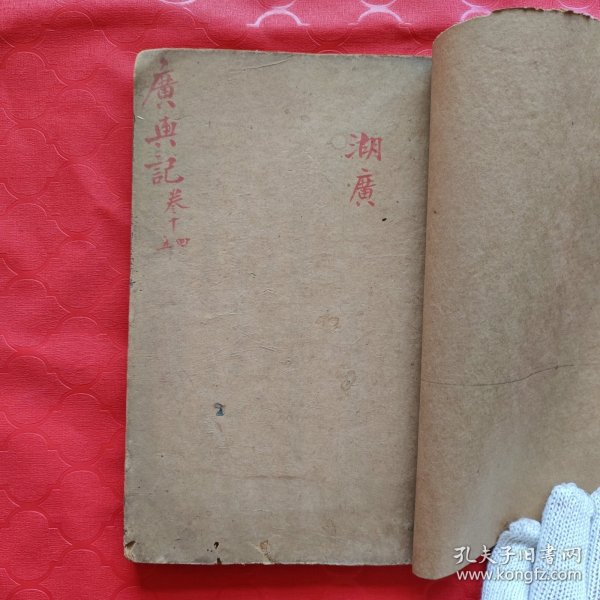 湖廣
廣輿記
卷十四
五
孔夫子旧书网
www.kongfz.com